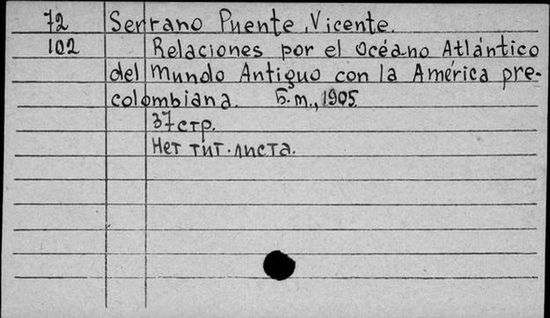 72 Serrano Puente, Vicente.
102 Relaciones por el Océano Atlántico
del Mundo Antiguo con la América pre-
colombiana. Б.м., 1905
37 стр.
Нет тит. листа.